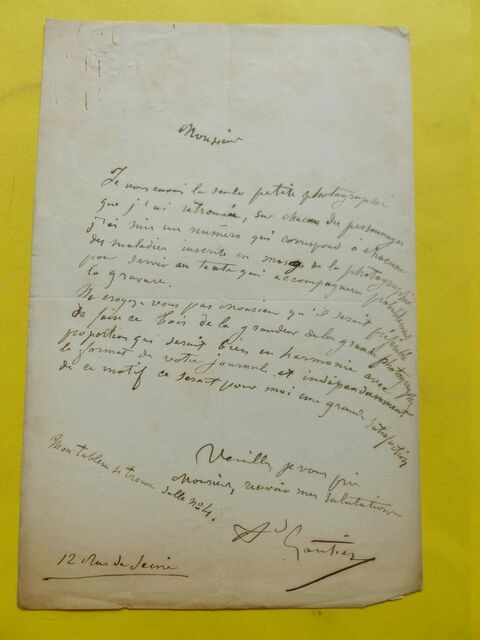 Monsieur
Je vous envoi la seule petite photographie
que j'ai retrouvée, sur chacun des personnages
j'ai mis un numéro qui correspond à chacune
des maladies inscrite en marge de la photographie
pour servir au texte qui accompagnera probablement
la gravure.
Ne croyez vous pas Monsieur qu'il serait préférable
de faire ce bois de la grandeur de la grande photographie
proportion qui serait bien en harmonie avec
le format de votre journal et indépendamment
de ce motif ce serait pour moi une grande satisfaction
Veuillez je vous prie
Monsieur, recevoir mes salutations
Ad Gautier
Mon tableau se trouve salle no 4.
12 Rue de Seine